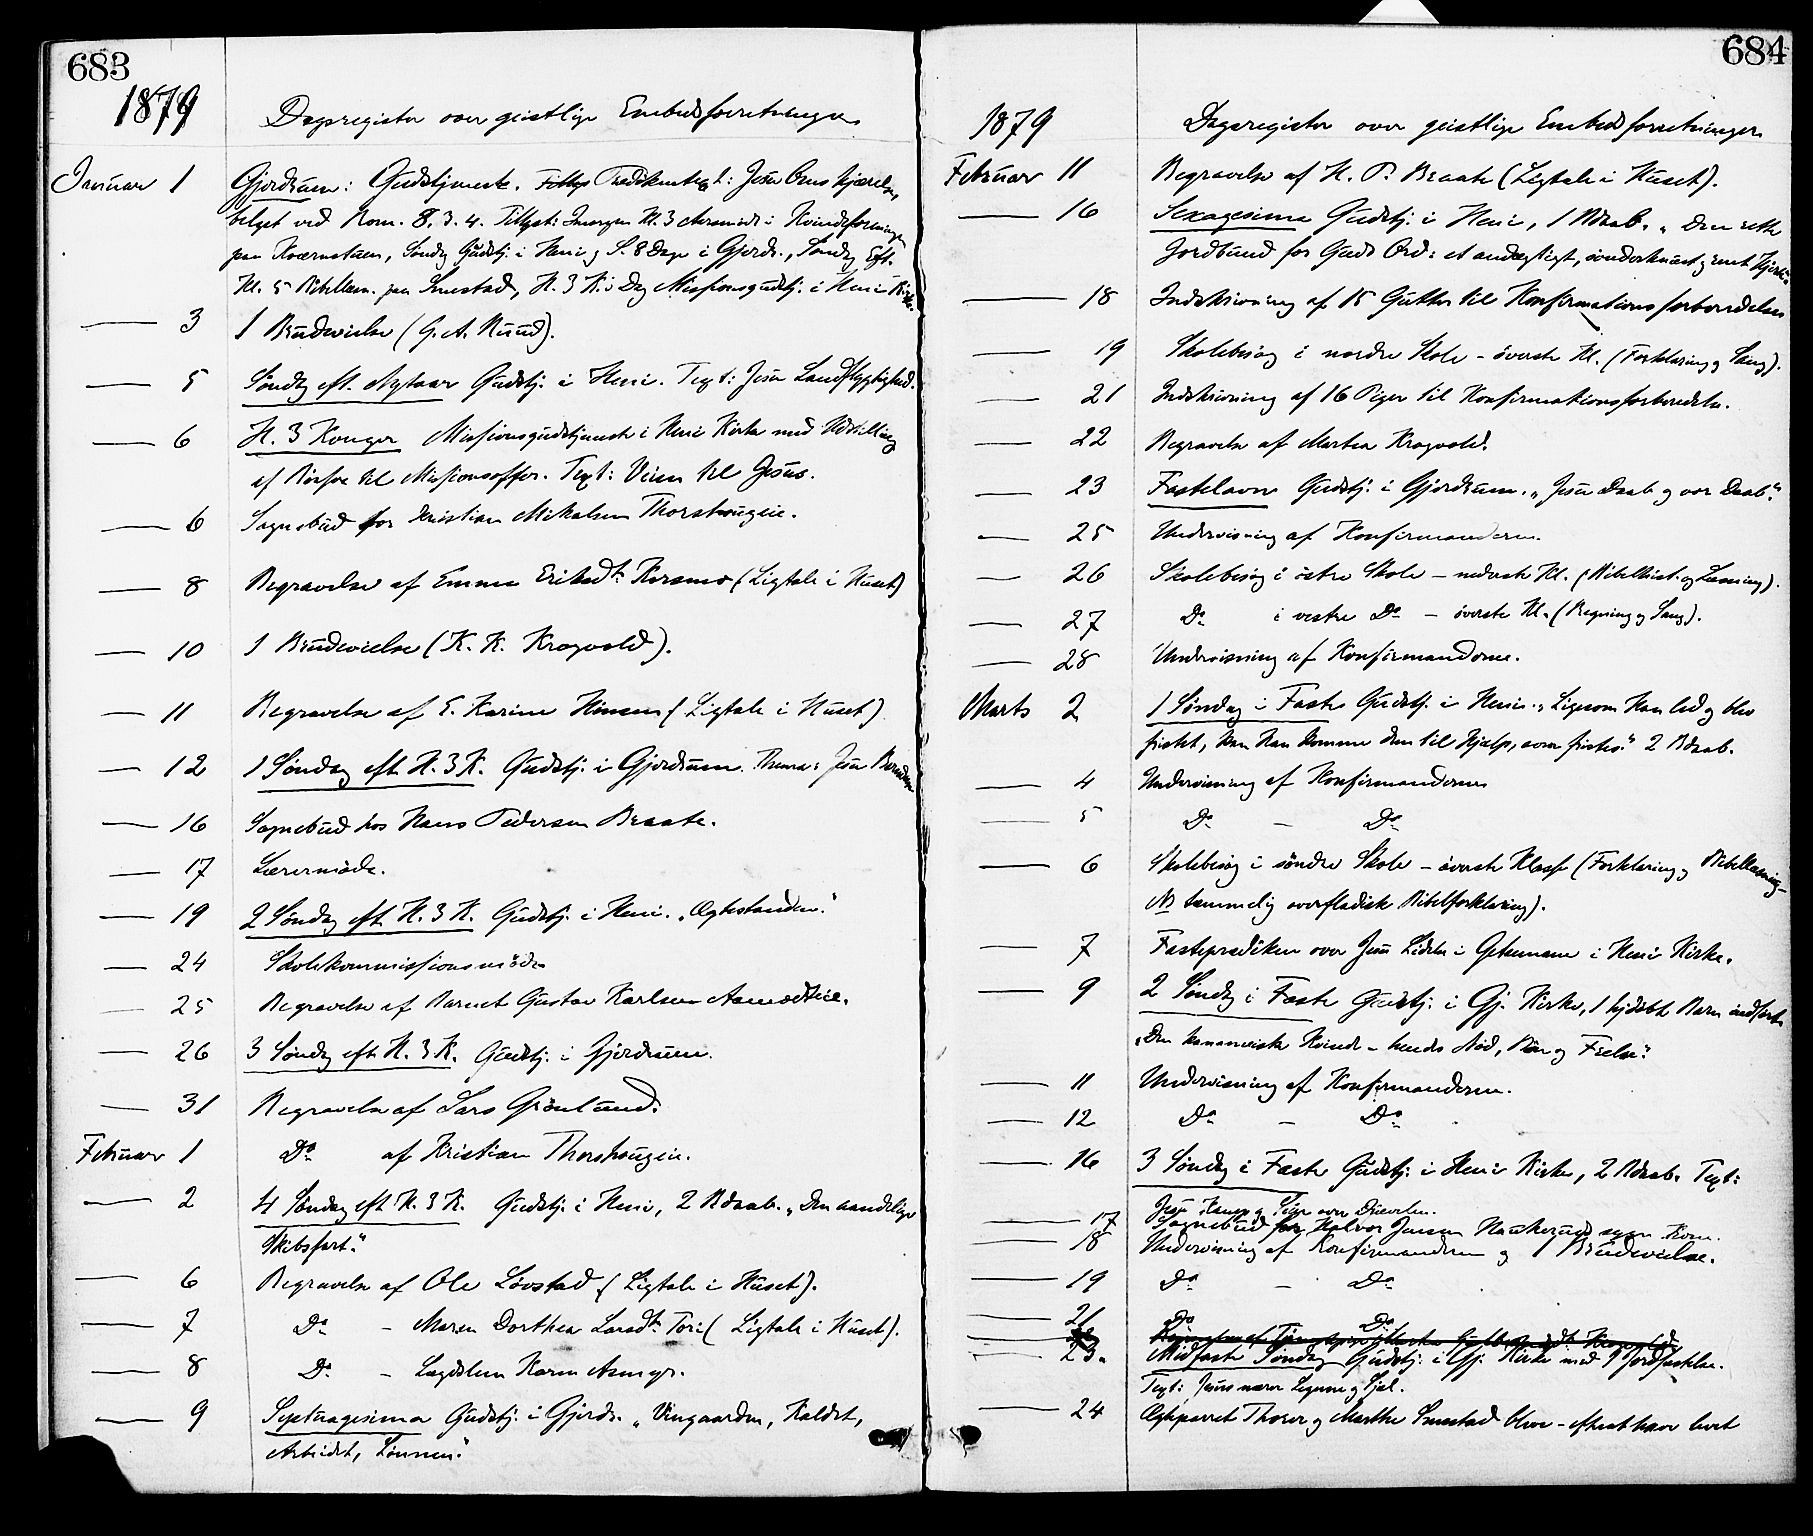 683
1879 Dagsregister over geistlige Embedsforretninger
Januar 1 Gjerdrum: Gudstjeneste. Prædikentext: Jesu Omskjærelse,
belyst ved Rom. 8, 3. 4. Kl. 3 i Kvindeforeningen
paa Kværnstuen, Søndag Gudstj. i Heni og S. 8 Dage i Gjerdr., Søndag Eft.
Kl. 5 Bibellæsn. paa Smestad, H. 3 K. Dag Missionsgudstj. i Heni Kirke.
— 3 1 Brudevielse (G. A. Ruud).
— 5 Søndag eft. Nytaar Gudstj. i Heni. Text: Jesu Landflygtighed.
— 6 H. 3 Konger Missionsgudstjeneste i Heni Kirke med Udstilling
af Bøsse til Missionsoffer. Text: Veien til Jesus.
— 6 Sognebud for Kristian Mikalsen Thorshaugeie.
— 8 Begravelse af Emma Eriksdtr Kirsmo (Ligtale i Huset)
— 10 1 Brudevielse (K. K. Krogvold).
— 11 Begravelse af E. Karine Hansen (Ligtale i Huset)
— 12 1 Søndag eft. H. 3 K. Gudstj. i Gjerdrum. Thema: Jesu Barndom
— 16 Sognebud hos Hans Pedersen Braate.
— 17 Lærermøde.
— 19 2 Søndag eft. H. 3 K. Gudstj. i Heni. „Ægtestanden."
— 24 Skolekommissionsmøde
— 25 Begravelse af Barnet Gustav Karlsen Aamodteie.
— 26 3 Søndag eft. H. 3 K. Gudstj. i Gjerdrum.
— 31 Begravelse af Lars Grønlund.
Februar 1 Do af Kristian Thorshaugeie.
— 2 4 Søndag eft. H. 3 K. Gudstj. i Heni, 2 Bdaab. „Den aandelige
Skibsfart."
— 6 Begravelse af Ole Løvstad (Ligtale i Huset).
— 7 Do – Maren Dorthea Larsdtr (Ligtale i Huset).
— 8 Do – Lægdslem Karen Asmyr.
— 9 Septuagesima Gudstj. i Gjerdr. „Vingaarden, Kaldet,
Arbeidet, Lønnen."
684
1879 Dagsregister over geistlige Embedsforretninger
Februar 11 Begravelse af H. P. Braate (Ligtale i Huset).
— 16 Sexagesima Gudstj. i Heni, 1 Bdaab. „Den rette
Jordbund for Guds Ord: et andægtigt, sønderknust og rent Hjerte"
— 18 Indskrivning af 15 Gutter til Konfirmationsforberedelse
— 19 Skolebesøg i nordre Skole – øverste Kl. (Forklaring og Sang).
— 21 Indskrivning af 16 Piger til Konfirmationsforberedelse.
— 22 Begravelse af Marthea Krogvold.
— 23 Fastelavns Gudstj. i Gjerdrum. „Jesu Daab og vor Daab."
— 25 Undervisning af Konfirmanderne.
— 26 Skolebesøg i østre Skole – nederste Kl. (Bibelhist. og Læsning).
— 27 Do i vestre Do – øverste Kl. (Regning og Sang).
— 28 Undervisning af Konfirmanderne.
Marts 2 1 Søndag i Faste Gudstj. i Heni. „Ligesom Han led og blev
fristet, kan Han komme dem til Hjælp, som fristes." 2 Bdaab.
— 4 Undervisning af Konfirmanderne
— 5 Do – Do
— 6 Skolebesøg i søndre Skole – øverste Klasse (Forklaring og Bibellæsning –
NB temmelig overfladisk Bibelforklaring).
— 7 Fasteprædiken over Jesu Lidelse i Getsemane i Heni Kirke.
— 9 2 Søndag i Faste Gudstj. i Gj. Kirke, 1 hjdøbt Barn indført
„Den kananæiske Kvinde – hendes Nød, Bøn og Frelse."
— 11 Undervisning af Konfirmanderne.
— 12 Do – Do
— 16 3 Søndag i Faste Gudstj. i Heni Kirke, 2 Bdaab. Text:
Jesu Kamp og Seier over Djævelen.
— 17 Sognebud for Halvor Jensen syg Kone.
— 18 Undervisning af Konfirmanderne og 1 Brudevielse.
— 19 Do – Do
— 21 Do Do
— 23. Midfaste Søndag Gudstj. i Gj. Kirke med 1 Jordfæstelse.
Text: Jesus nærer Legeme og Sjæl.
— 24 Ægteparret Thorer og Marthe Smestad bleve – efterat have levet